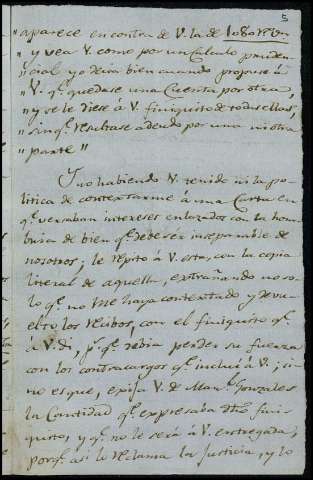 5
aparece en contra de V. la de 1080 r.s v.n
" y vea V. como por un Calculo pruden
" cial yo decia bien cuando propuse á
" V. q.e quedase una Cuenta por otra,
" y se le diese á V. finiquito de todas ellas,
" sin q.e resultase adeudo por una ni otra
" parte "
Y no habiendo V. tenido ni la po-
litica de contextarme á una Carta en
q.e versaban intereses enlazados con la hom-
bria de bien q.e debe ser inseparable de
nosotros; le repito á V. esta, con la copia
literal de aquella, extrañando no so-
lo q.e no me haya contextado y devu-
elto los recibos, con el finiquito q.e
á V. di, p.r q.e debia perder su fuerza
con los contracargos q.e incluí á V.; si-
no es que, exija V. de Man.l Gonzales
la Cantidad q.e expresaba dho fini-
quito, y q.e no le será á V. entregada,
porq.e asi lo reclama la Justicia, y lo